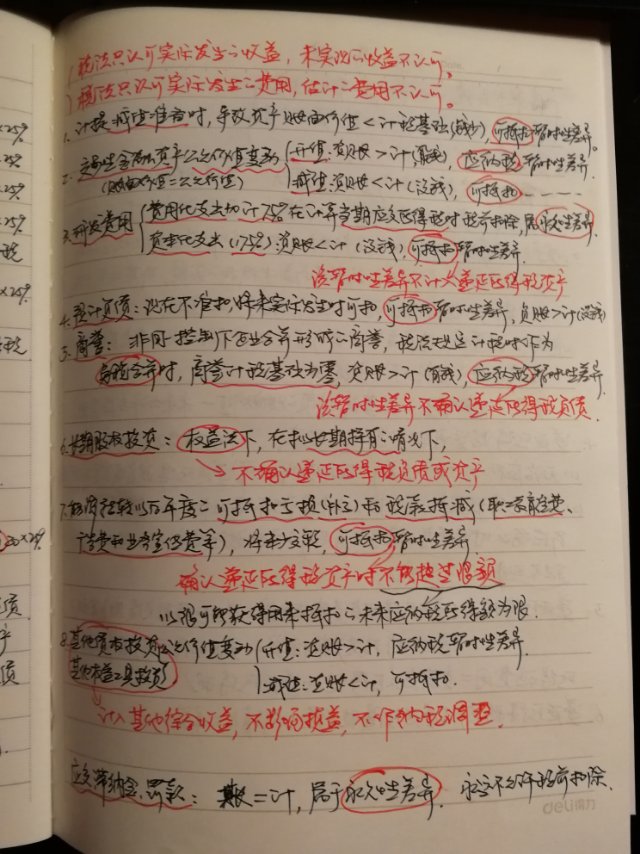 税法只认可实际发生的收益，未实现的收益不认可。
税法只认可实际发生的费用，估计的费用不认可。
1. 计提减值准备时，导致资产账面价值＜计税基础(没钱)，可抵扣暂时性差异。
2. 交易性金融资产公允价值变动 升值：资账＞计(有钱)，应纳税暂时性差异.
(账面价值=公允价值) 减值：资账＜计(没钱)，可抵扣 -----
3. 研发费用 费用化支出加计75%在计算当期应交所得税时税前扣除，属永久性差异.
资本化支出(175%)：资账＜计(没钱)，可抵扣暂时性差异.
该暂时性差异不计入递延所得税资产
4. 预计负债：现在不准扣，将来实际发生时可扣，可抵扣暂时性差异，负账＞计(没钱)
5. 商誉：非同一控制下企业合并形成的商誉，税法规定计税时作为
免税合并时，商誉计税基础为零，资账＞计(有钱)，应纳税暂时性差异.
该暂时性差异不确认递延所得税负债.
6. 长期股权投资：权益法下，在拟长期持有的情况下，
不确认递延所得税负债或资产
7. 能够结转以后年度的可抵扣亏损(补亏)和税款抵减(职工教育经费、
广告费和业务宣传费等)，将来少交税，可抵扣暂时性差异
确认递延所得税资产时不能超过限额
以很可能获得用来抵扣的未来应纳税所得额为限.
8. 其他债权投资公允价值变动 升值：资账＞计，应纳税暂时性差异.
其他权益工具投资 减值：资账＜计，可抵扣.
计入其他综合收益，不影响损益，不作纳税调整.
应交滞纳金、罚款：账=计，属于永久性差异. 永远不允许税前扣除.
deli得力